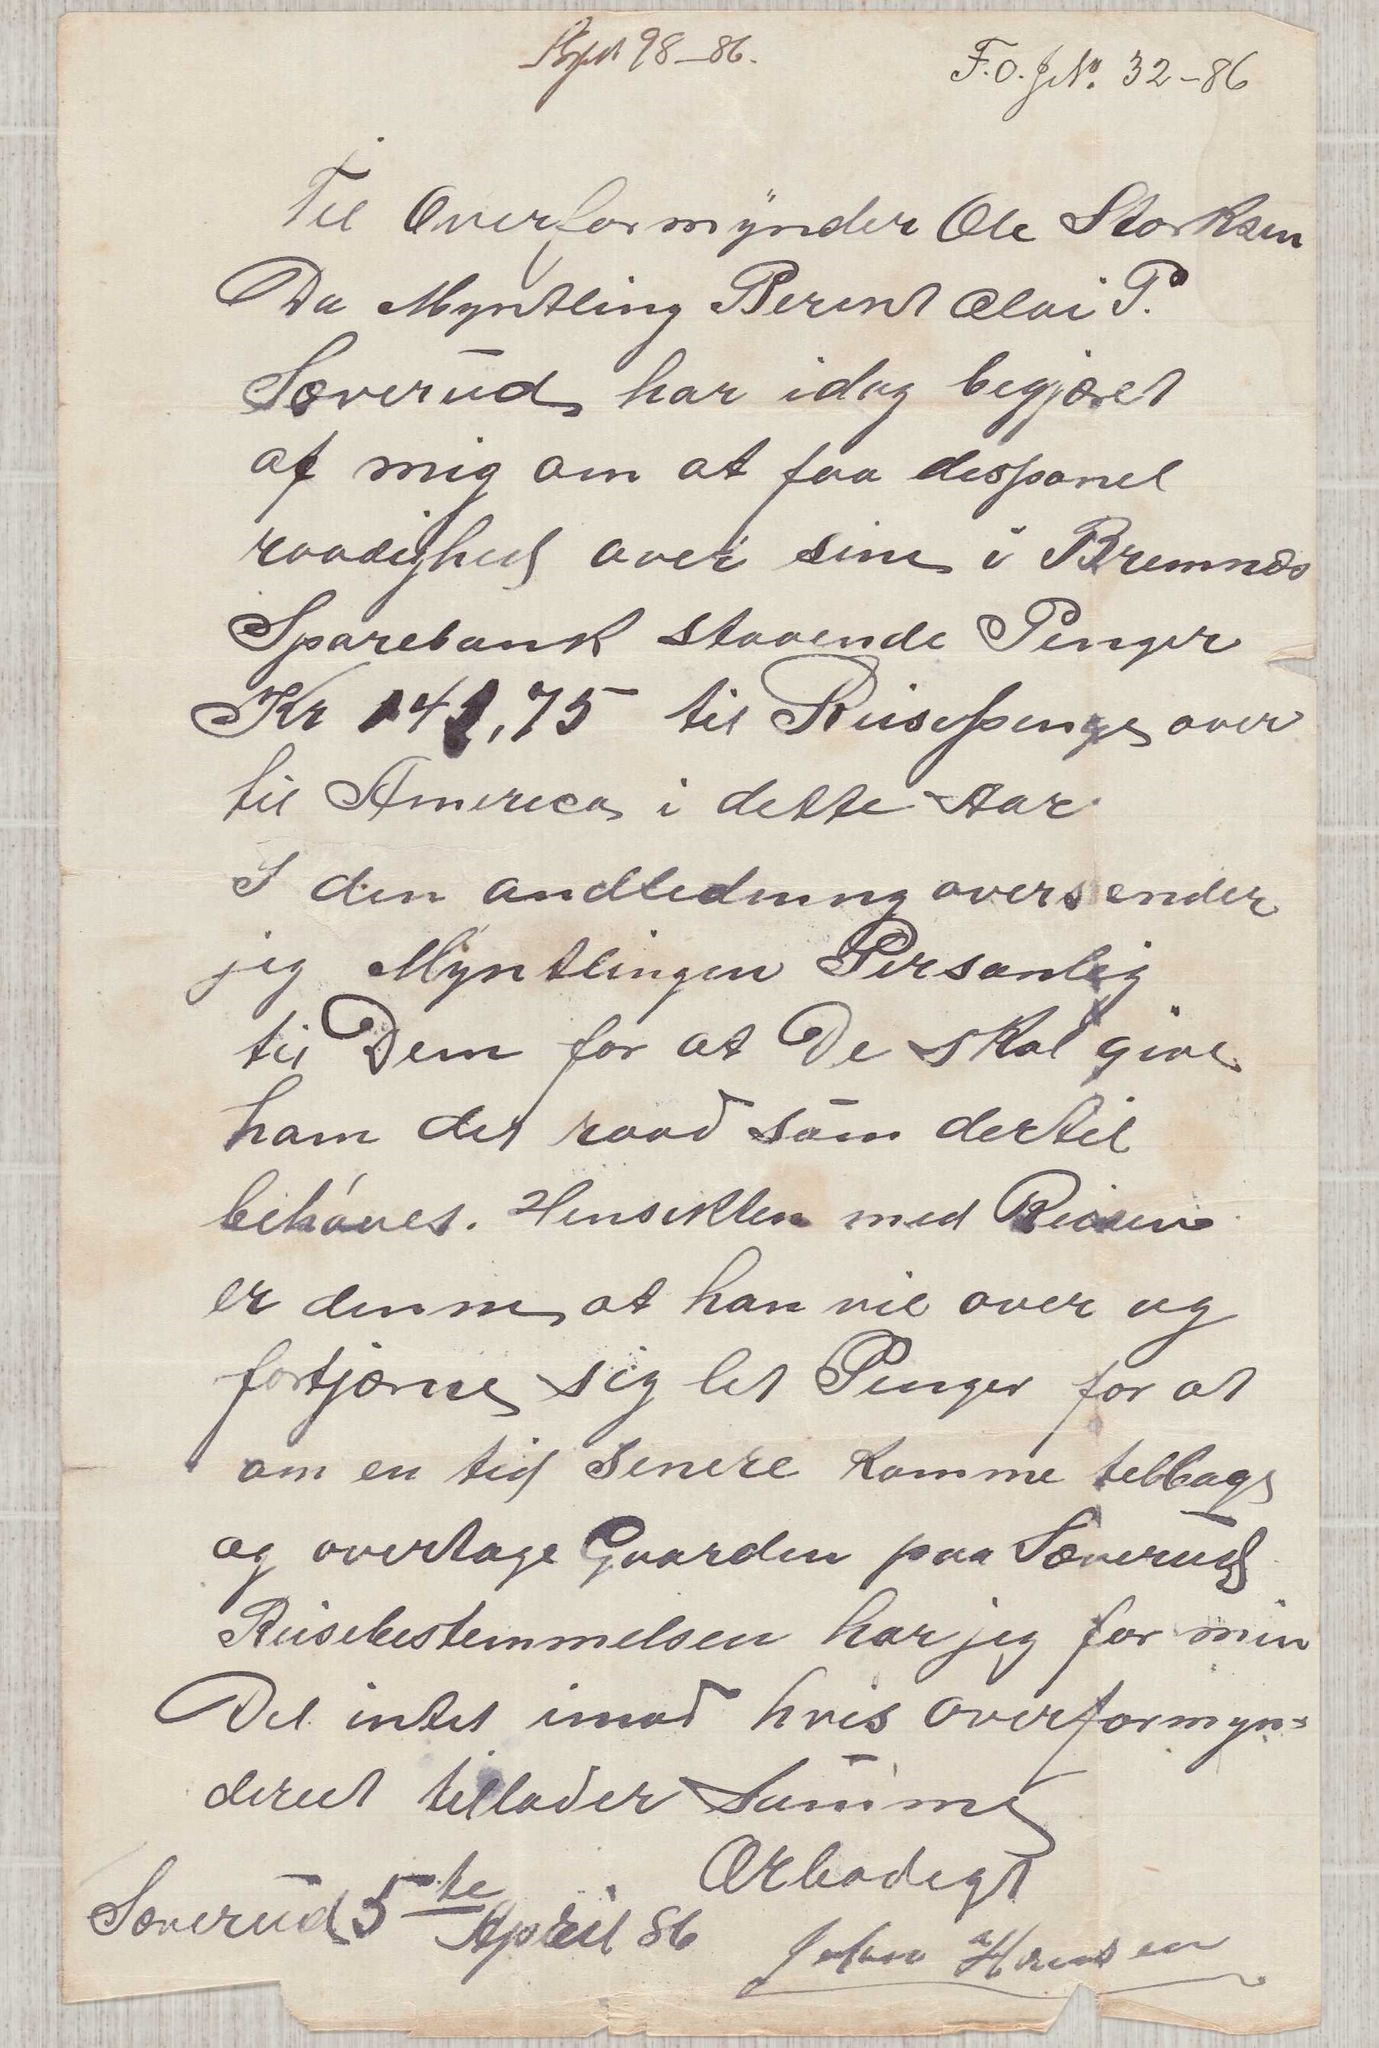 98-86.
F.O.JNo. 32-86
Til Overformÿnder Ole Storksen
Da Myntling Berent Olai P.
Særerūd har idag begjæret
af mig om at faa desponel
raadighed over sine i Bremnæs
Sparebank staaende Penger
Kr 141,75 til Reisepenge over
til America i dette Aar
I den andledning oversender
jeg Myntlingen Personlig
til Dem for at De skal give
ham det raad som dertil
behóves. Hensikten med Reisen
er denne at han vil over og
fortjæne sig let Penger for at
om en tid senere komme telbage
og overtage Gaarden paa Særerūd
Reisebestemmelsen har jeg for min
Del intet imod hvis overformyn=
deriet tillader Samme
Ærbødigt
Særerūd 5te April 86
Johan Hansen